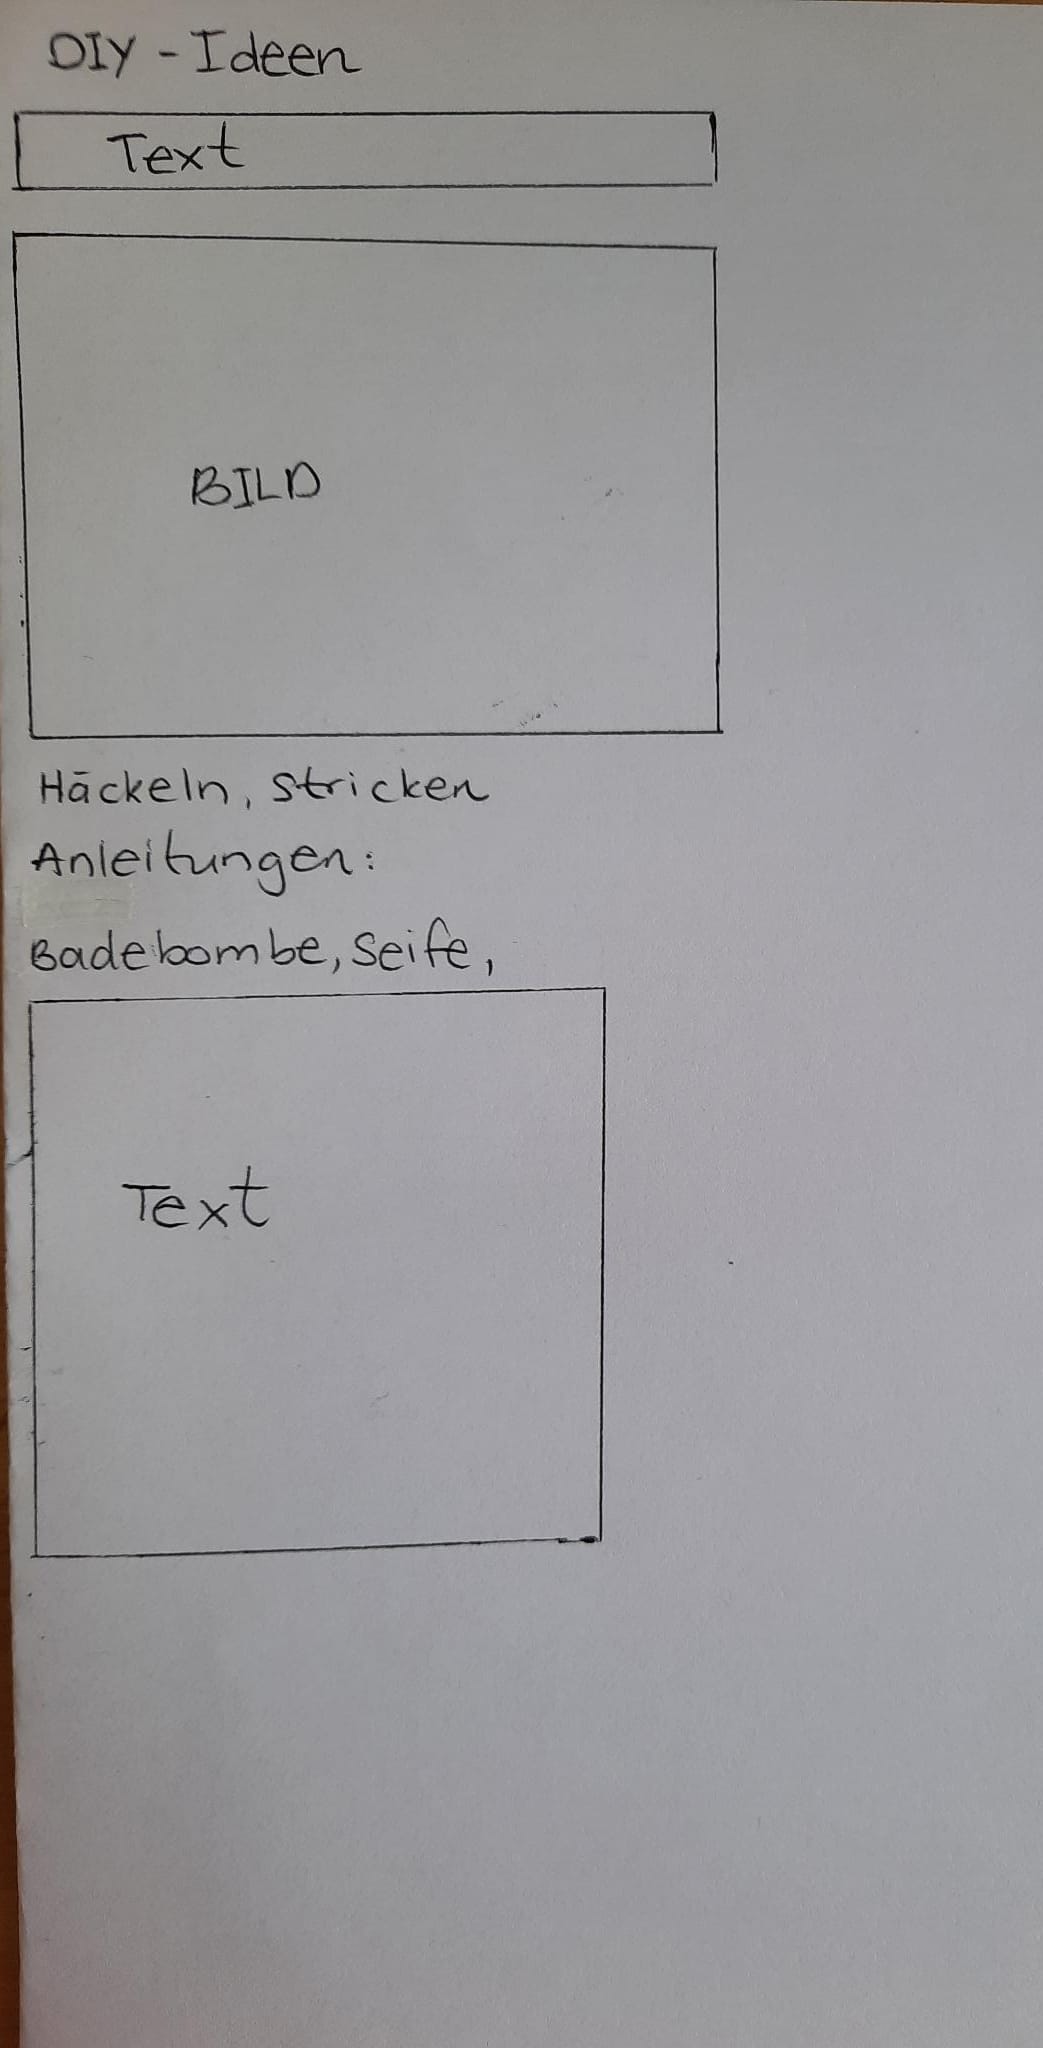 DIY - Ideen
Text
BILD
Häckeln, stricken
Anleitungen:
Badebombe, Seife,
Text